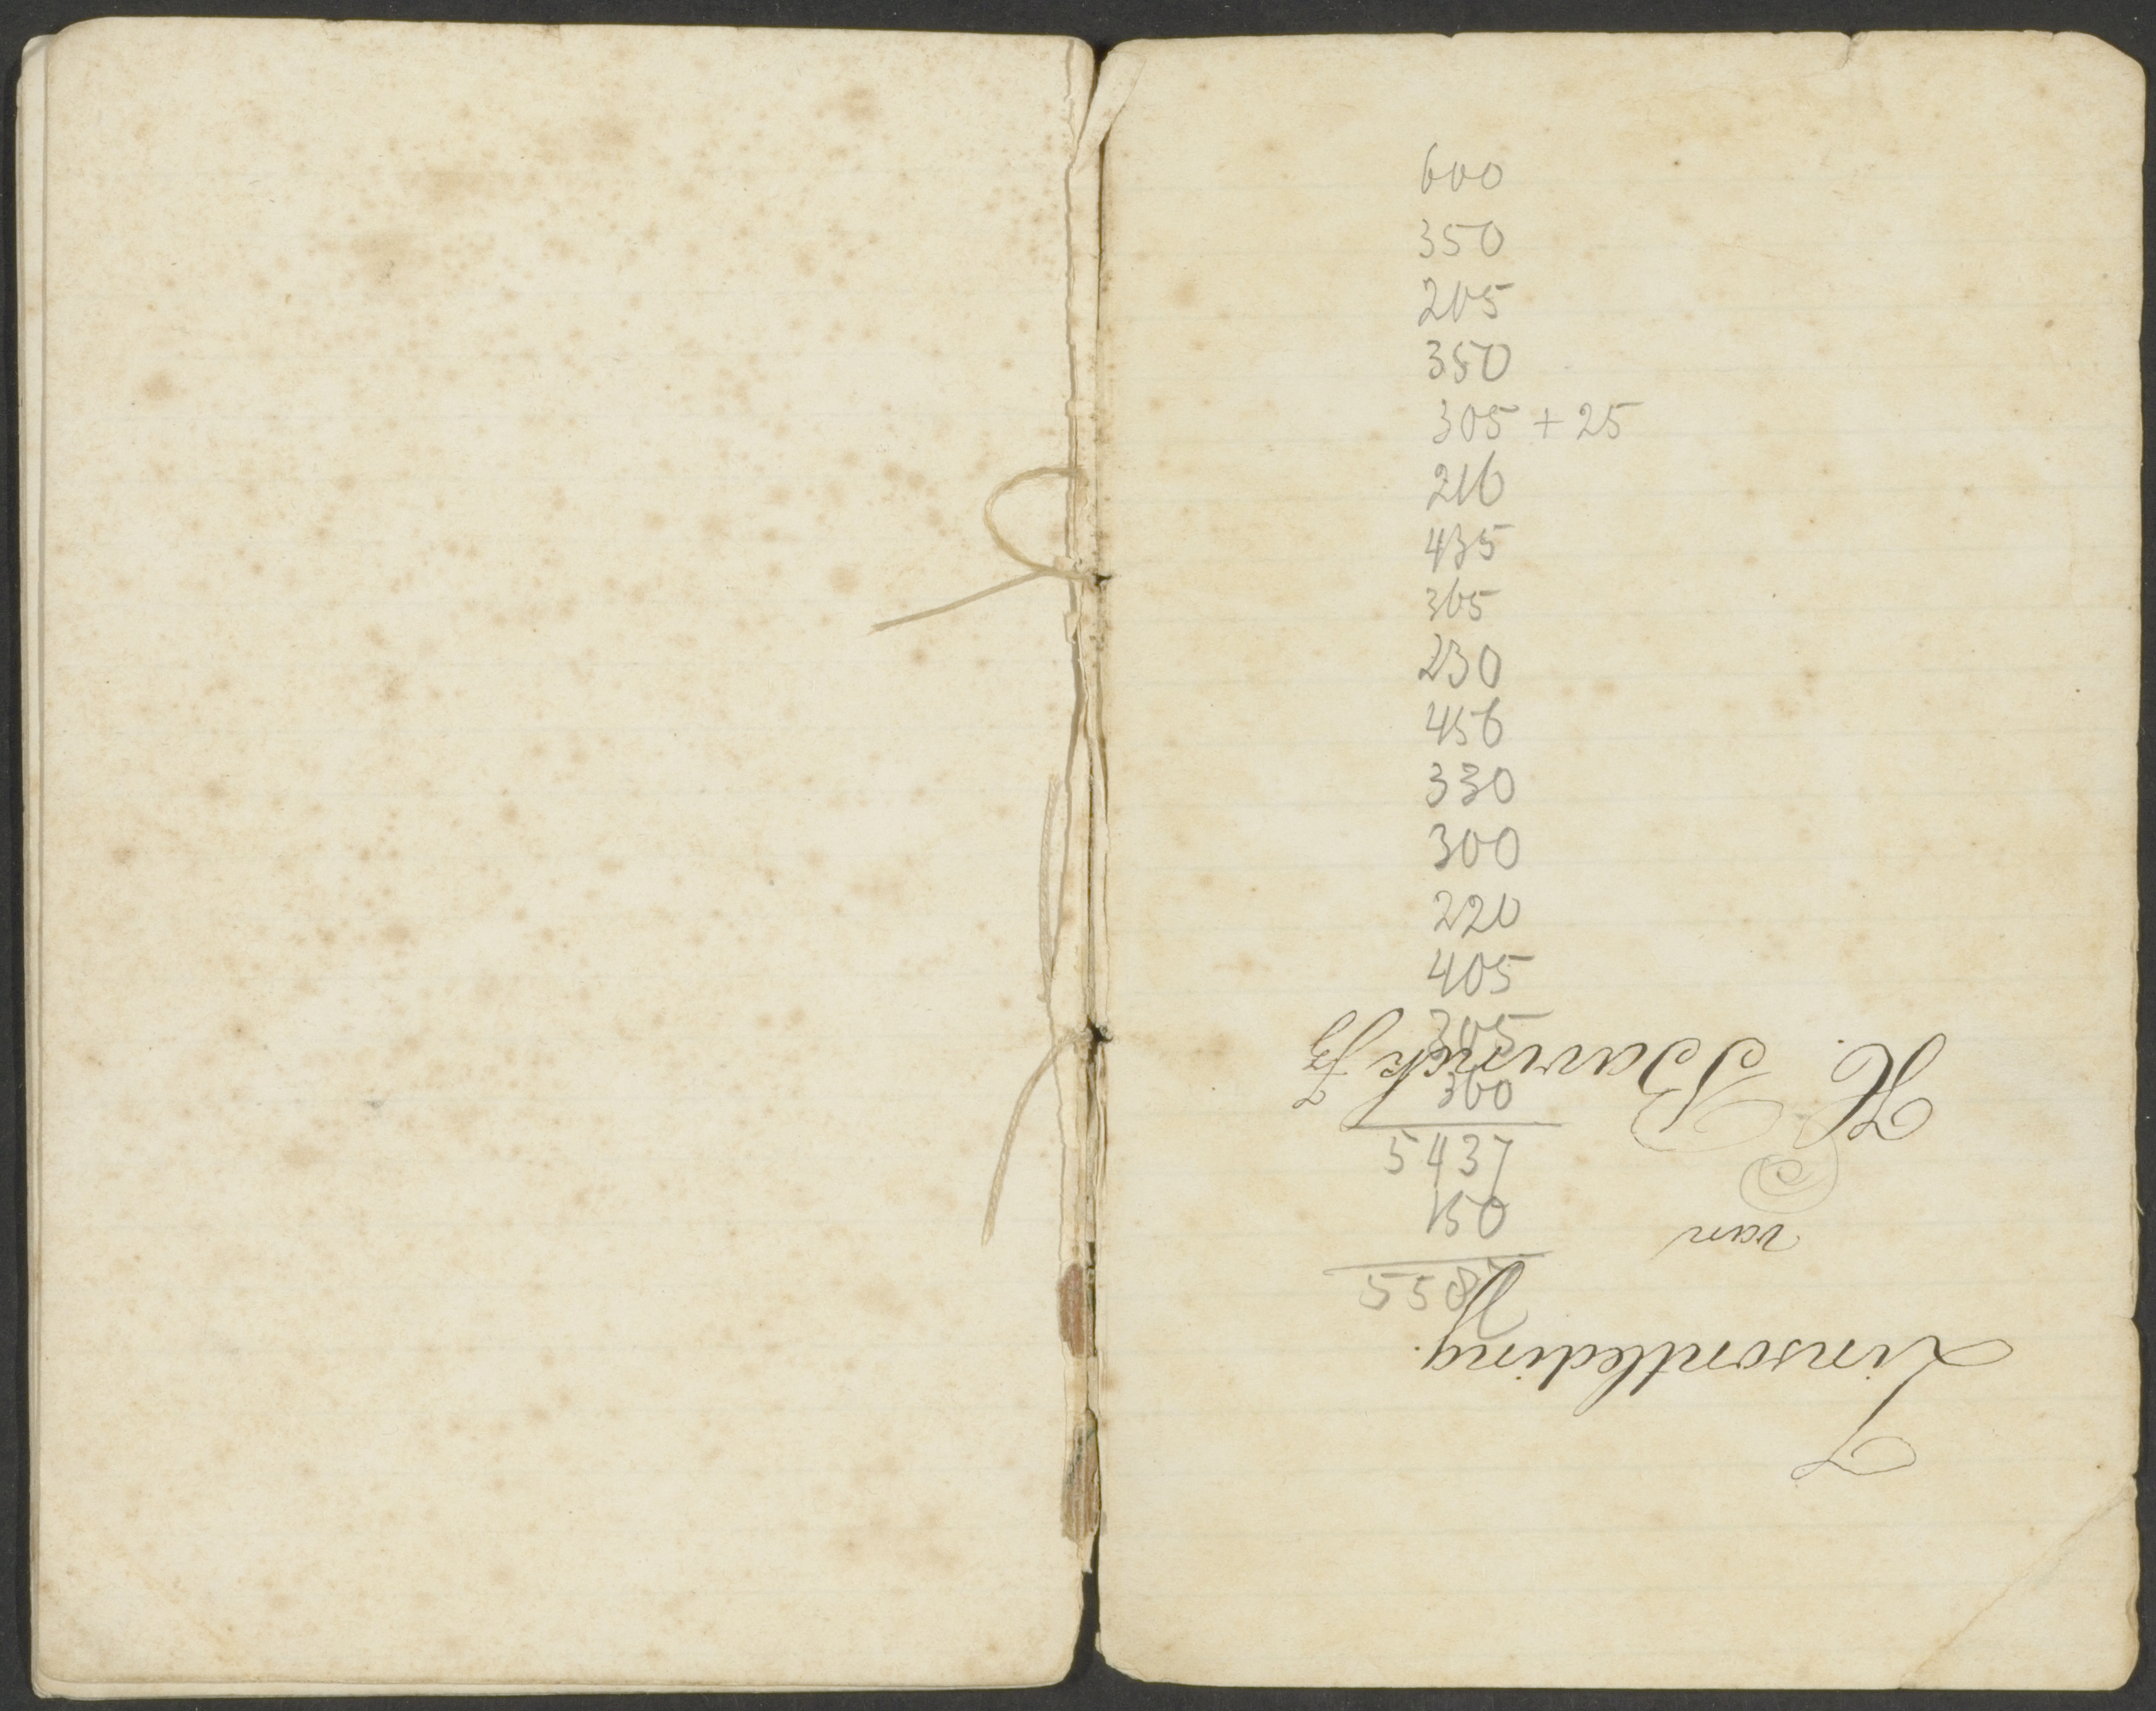 600
350
205
350
305 + 25
216
435
365
230
456
330
300
220
405
305
360
5437
150
5587
Zinsontleding.
van
H. Bavinck Jz